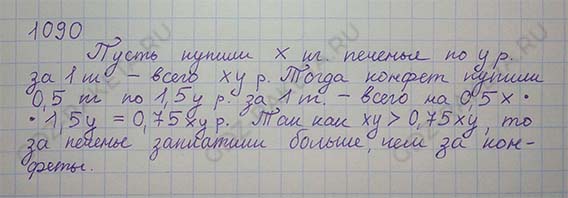 1090
Пусть купили x кг печенья по y р.
за 1 кг – всего xy р. Тогда конфет купили
0,5 кг по 1,5y р. за 1 кг. – всего на 0,5x ·
· 1,5y = 0,75xy р. Так как xy > 0,75xy, то
за печенье заплатили больше, чем за кон-
феты.